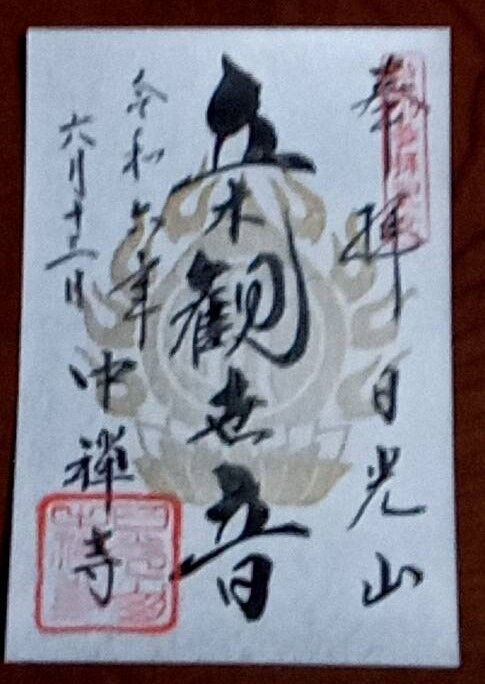 奉拝 日光山
立木観世音
令和六年
六月十三日
中禅寺